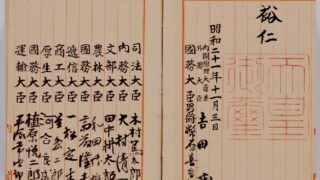 裕仁
昭和二十一年十一月三日
内閣總理大臣兼
外務大臣
吉田
國務大臣
男爵幣原喜
司法大臣
木村篤太郎
内務大臣
大村清
文部大臣
田中耕太郎
農林大臣
和田
國務大臣
斎藤隆夫
遞信大臣
一松定吉
商工大臣
星島二郎
厚生大臣
河合良成
國務大臣
植原悦二郎
運輸大臣
平塚常次郎